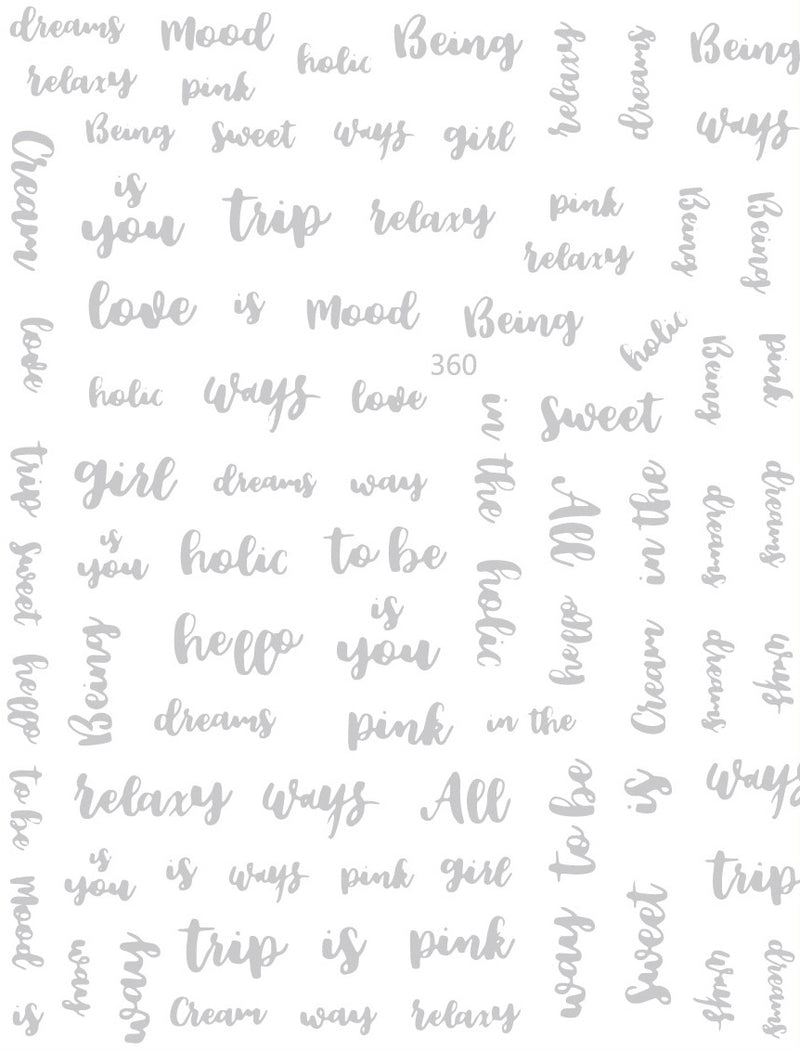 dreams Mood holic Being relaxy dreams Being
relaxy pink
Being sweet ways girl ways
Cream
is
you trip relaxy pink Being Being
relaxy
love is Mood Being holic
love 360 Being pink
holic ways love in the sweet
trip girl dreams way All in the dreams dreams
sweet is
you holic to be holic
hello Being hello is
you hello Cream dreams ways
dreams pink in the
to be relaxy ways All to be is ways
is
you is ways pink girl trip
Mood way way trip is pink way sweet ways dreams
is Cream way relaxy